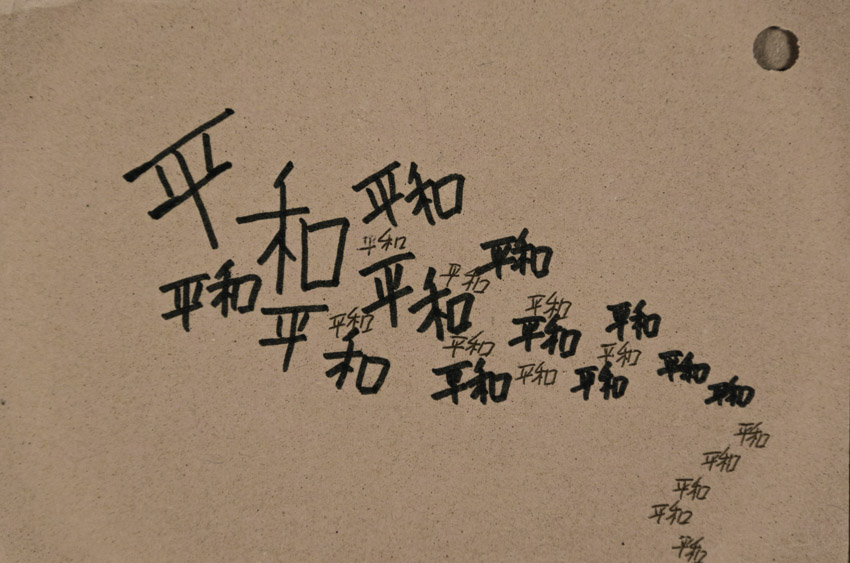 平和
平和
平和
平和
平和
平和
平和
平和
平和
平和
平和
平和
平和
平和
平和
平和
平和
平和
平和
平和
平和
平和
平和
平和